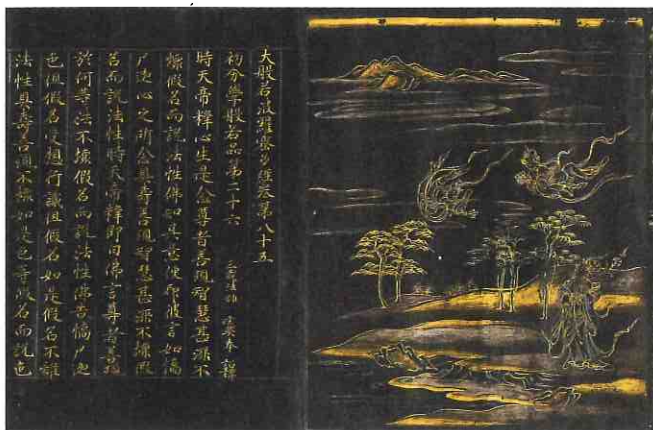 大般若波羅蜜多經卷第八十五
初分學般若品第二十六 三藏法師 玄奘奉 詔譯
時天帝釋心生是念尊者善現智慧甚深不
壞假名而說法性佛知其意便印彼言如憍
尸迦心之所念具壽善現智慧甚深不壞假
名而說法性時天帝釋即白佛言尊者善現
於何等法不壞假名而說法性佛言憍尸迦
色但假名受想行識但假名如是假名不離
法性具壽善現不壞如是色等假名而說色